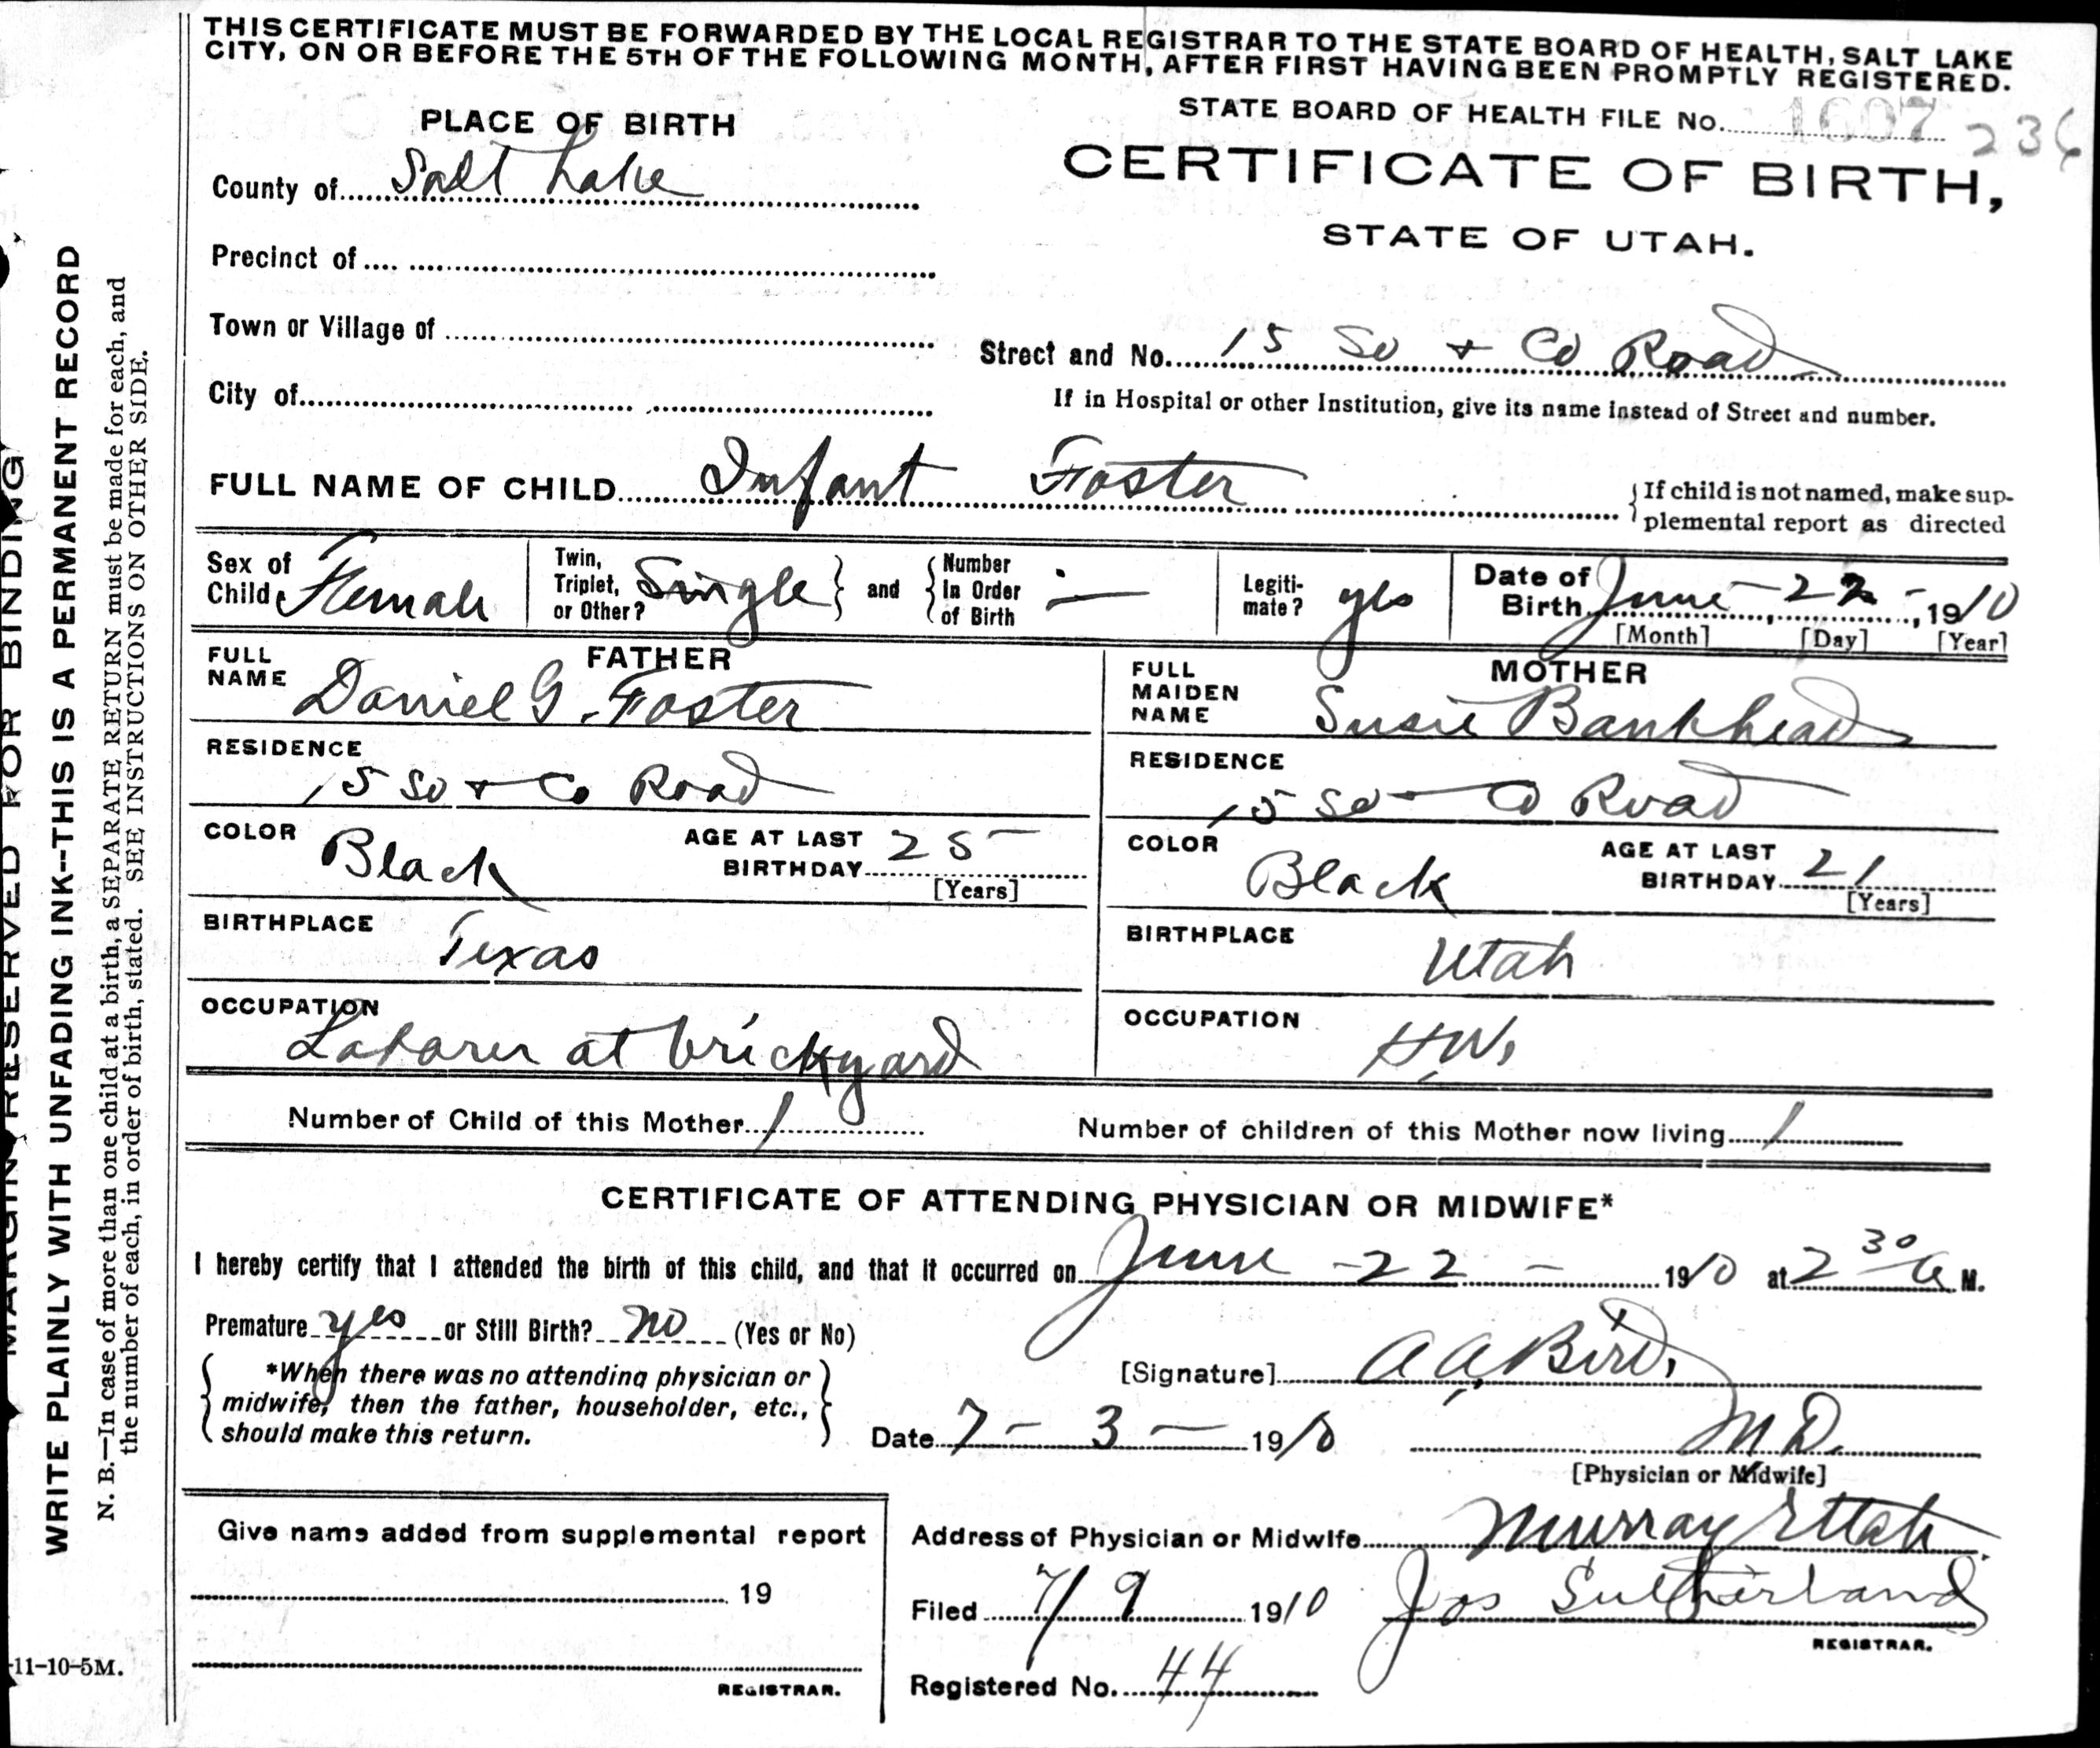 THIS CERTIFICATE MUST BE FORWARDED BY THE LOCAL REGISTRAR TO THE STATE BOARD OF HEALTH, SALT LAKE
CITY, ON OR BEFORE THE 5TH OF THE FOLLOWING MONTH, AFTER FIRST HAVING BEEN PROMPTLY REGISTERED.
STATE BOARD OF HEALTH FILE No. 1607 236
PLACE OF BIRTH
CERTIFICATE OF BIRTH,
County of Salt Lake
STATE OF UTAH.
Precinct of
Town or Village of
Street and No. 15 So + Co Road
City of
If in Hospital or other Institution, give its name instead of Street and number.
FULL NAME OF CHILD Infant Foster
If child is not named, make sup-
plemental report as directed
Sex of Child Female
Twin, Triplet, or Other? Single and
Number In Order of Birth —
Legiti-mate? yes
Date of Birth June - 22 -, 1910
[Month] [Day] [Year]
FATHER
FULL NAME Daniel G. Foster
RESIDENCE 15 So + Co Road
COLOR Black
AGE AT LAST BIRTHDAY 25
[Years]
BIRTHPLACE Texas
OCCUPATION Laborer at brickyard
MOTHER
FULL MAIDEN NAME Susie Bankhead
RESIDENCE 15 So - Co Road
COLOR Black
AGE AT LAST BIRTHDAY 21
[Years]
BIRTHPLACE Utah
OCCUPATION H.W.
Number of Child of this Mother 1
Number of children of this Mother now living 1
CERTIFICATE OF ATTENDING PHYSICIAN OR MIDWIFE*
I hereby certify that I attended the birth of this child, and that it occurred on June - 22 - 1910 at 2 30 a M.
Premature yes or Still Birth? no (Yes or No)
*When there was no attending physician or
midwife, then the father, householder, etc.,
should make this return.
[Signature] A A Bird,
Date 7 - 3 - 1910 M D.
[Physician or Midwife]
Give name added from supplemental report
19
REGISTRAR.
Address of Physician or Midwife Murray Utah
Filed 7/9 1910 Jos Sutherland
REGISTRAR.
Registered No. 44
MARGIN RESERVED FOR BINDING
WRITE PLAINLY WITH UNFADING INK--THIS IS A PERMANENT RECORD
N. B.—In case of more than one child at a birth, a SEPARATE RETURN must be made for each, and
the number of each, in order of birth, stated. SEE INSTRUCTIONS ON OTHER SIDE.
-11-10-5M.